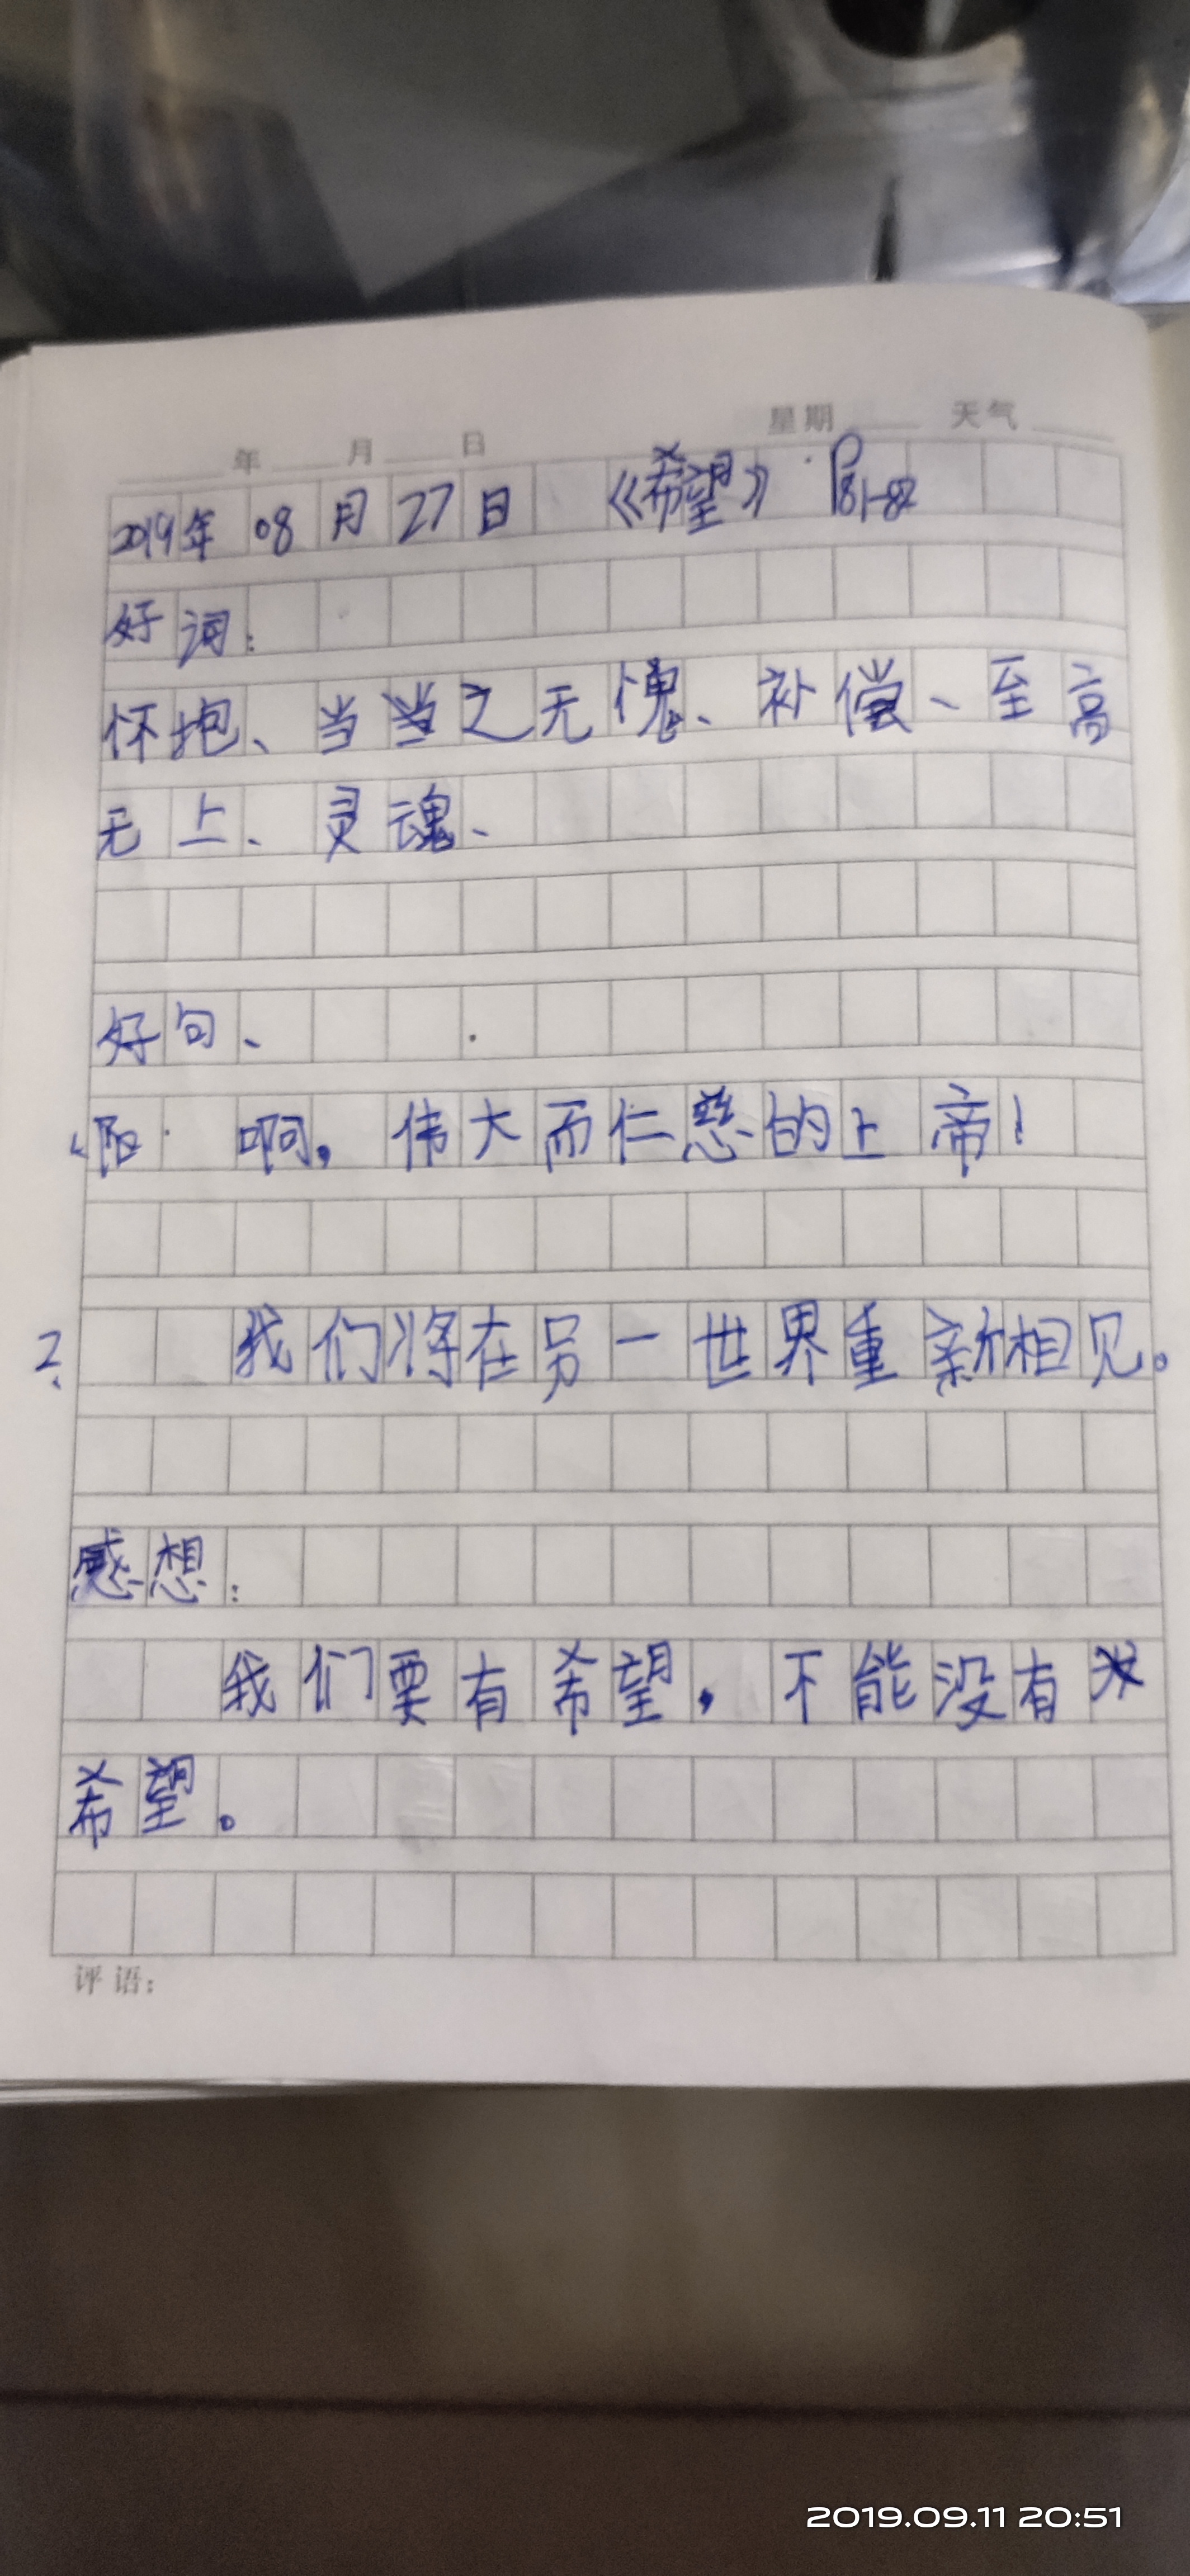 年 月 日 星期 天气
2019年 08 月 27 日 《希望》 P81-82
好词:
怀抱、当当之无愧、补偿、至高
无上、灵魂、
好句、
啊,伟大而仁慈的上帝!
2. 我们将在另一世界重新相见。
感想:
我们要有希望,不能没有
希望。
评语:
2019.09.11 20:51